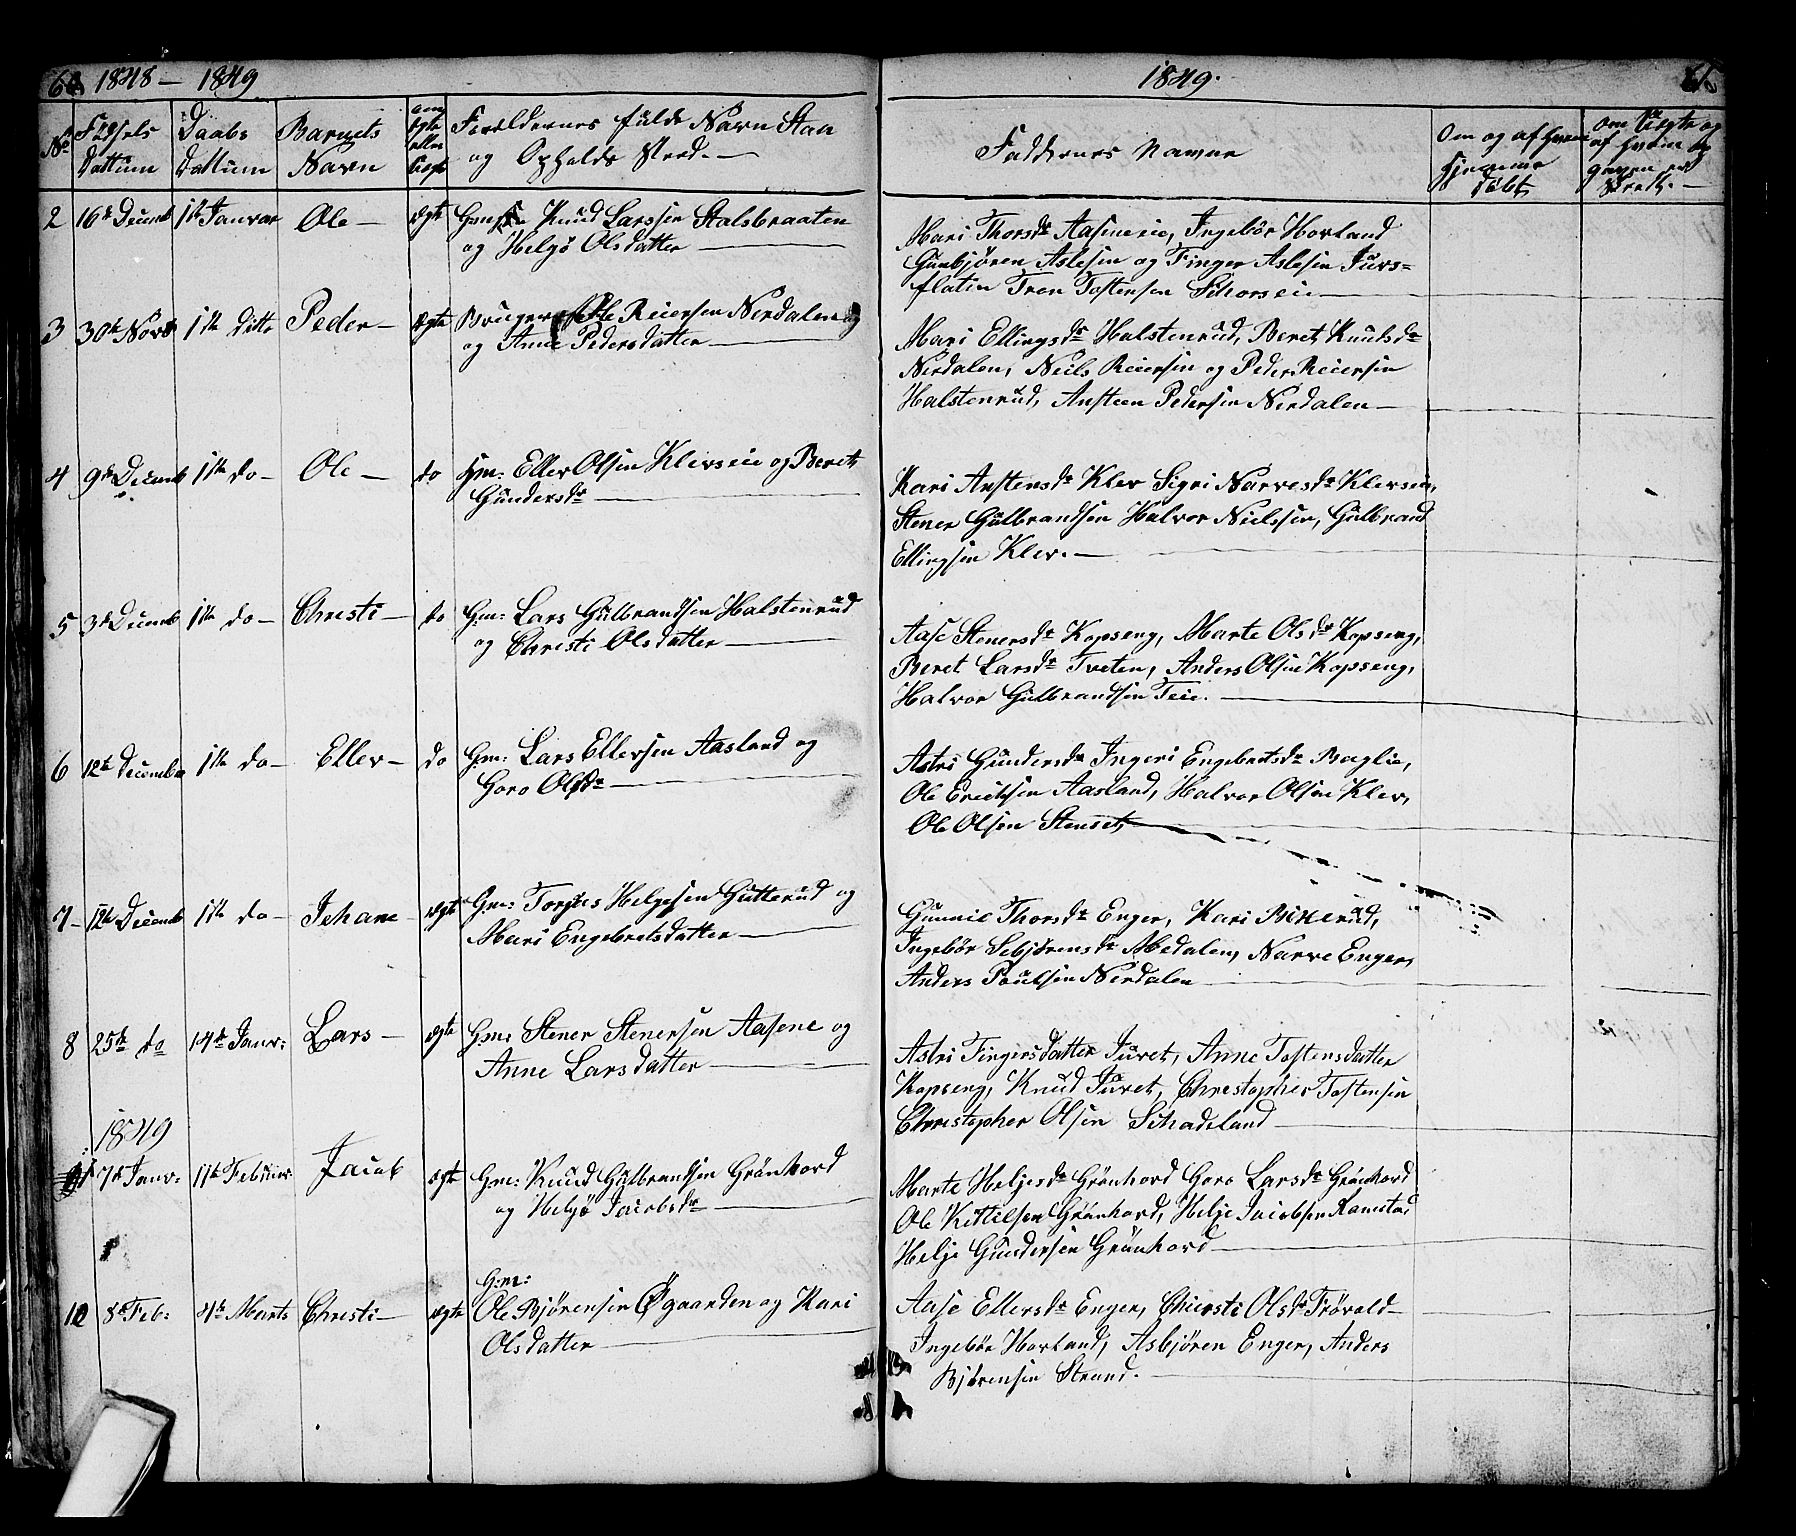 60 1848 — 1849
1849.
61
No Födsels Dattum
Daabs Dattum
Barnets Navn
om Ægte eller Uegte
Foreldrenes fulde Navn Stan og Opholds Sted. —
Faddernes Navne
Om og af hvem hjemme döbt
2 16de Decemb 1ste Januar Ole — Ægte Gm: Knud Larssen Stalsbraaten
og Helgö Olsdatter —
Mari Thorsdr Aasineeie, Ingebör Horland
Gunbjören Aslesen og Finger Aslesen Juvs=
flatin Tron Tostensen —
3 30te Novb 1ste ditto Peder — Ægte Bruger Ole Reiersen Nerdalen og
og Anne Pedersdatter —
Mari Ellingsdr Halstenrud, Beret Knudsdr
Nerdalen, Neils Reiersen og Peder Reiersen
Halstenrud, Ansteen Pedersen Nerdalen —
4 9de Decemb 1ste do — Ole — do Hm: Eller Olsen Klevseie og Beret
Gundersdr —
Kari Anstensdr Klev Sigri Narvesdr Klevseie,
Stener Gulbrandsen Halvor Nielssen, Gulbrand
Ellingsen Klev. —
5 3de Decemb 1ste do — Christi — do Gm: Lars Gulbrandsen Halstenrud
og Christi Olsdatter —
Aase Stenersdr Kopseng, Marte Olsdr Kopseng,
Beret Larsdr Tveten, Anders Olsen Kopseng,
Halvor Gulbrandsen Teie. —
6 12te Decembr 1ste do — Eller — do Gm: Lars Ellersen Aasland og
Goro Olsdr —
Astri Gundersdr Ingeri Engebretsdr Baglie,
Ole Ericksen Aasland, Halvor Olsen Klev,
Ole Olsen Stenset,
7 — 12te Decemb 1ste do — Jehane — ægte Gm: Torjus Helgesen Gutterud og
Mari Engebretsdatter —
Gunnil Thorsdr Enger, Kari Bikerud,
Ingebör Sebjörensdr Medalen, Narve Enger,
Anders Poulsen Nerdalen —
8 25de do 14de Janv: Lars — ægte Gm: Stener Stenersen Aasene og
Anne Larsdatter —
Astri Fingersdatter Juvet, Anne Tostensdatter
Kopseng, Knud Juvet, Christopher Tostensen
Christopher Olsen Schadeland —
1849
7de Janv: 11te Februar Jacob ægte Gm: Knud Gulbrandsen Grönhovd
og Helgö Jacobsdr —
Marte Heljesdr Grönhovd Goro Larsdr Grönhovd
Ole Kittilsen Grönhovd, Helje Jacobsen Ramstad
Helje Gundersen Grönhovd —
10 8de Feb: 4de Marts Christi — ægte Gm:
Ole Björensen Øgaarden og Kari
Olsdatter —
Aase Ellersdr Enger, Chiersti Olsdr Trövald —
Ingebör Horland, Asbjören Enger, Anders
Björensen Strand. —